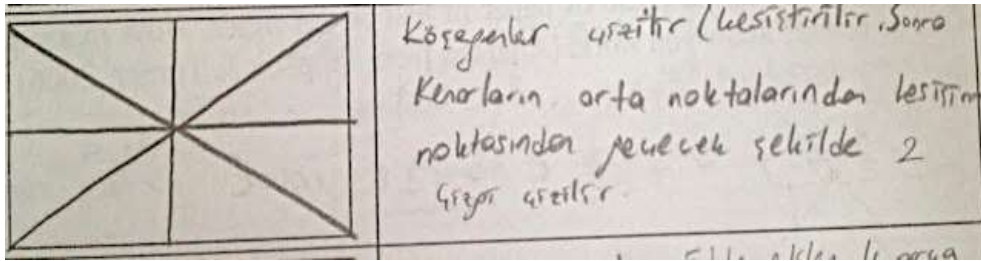 Köşegenler çizilir (kesiştirilir. Sonra
Kenarların orta noktalarından kesişim
noktasından geçecek şekilde 2
çizgi çizilir.